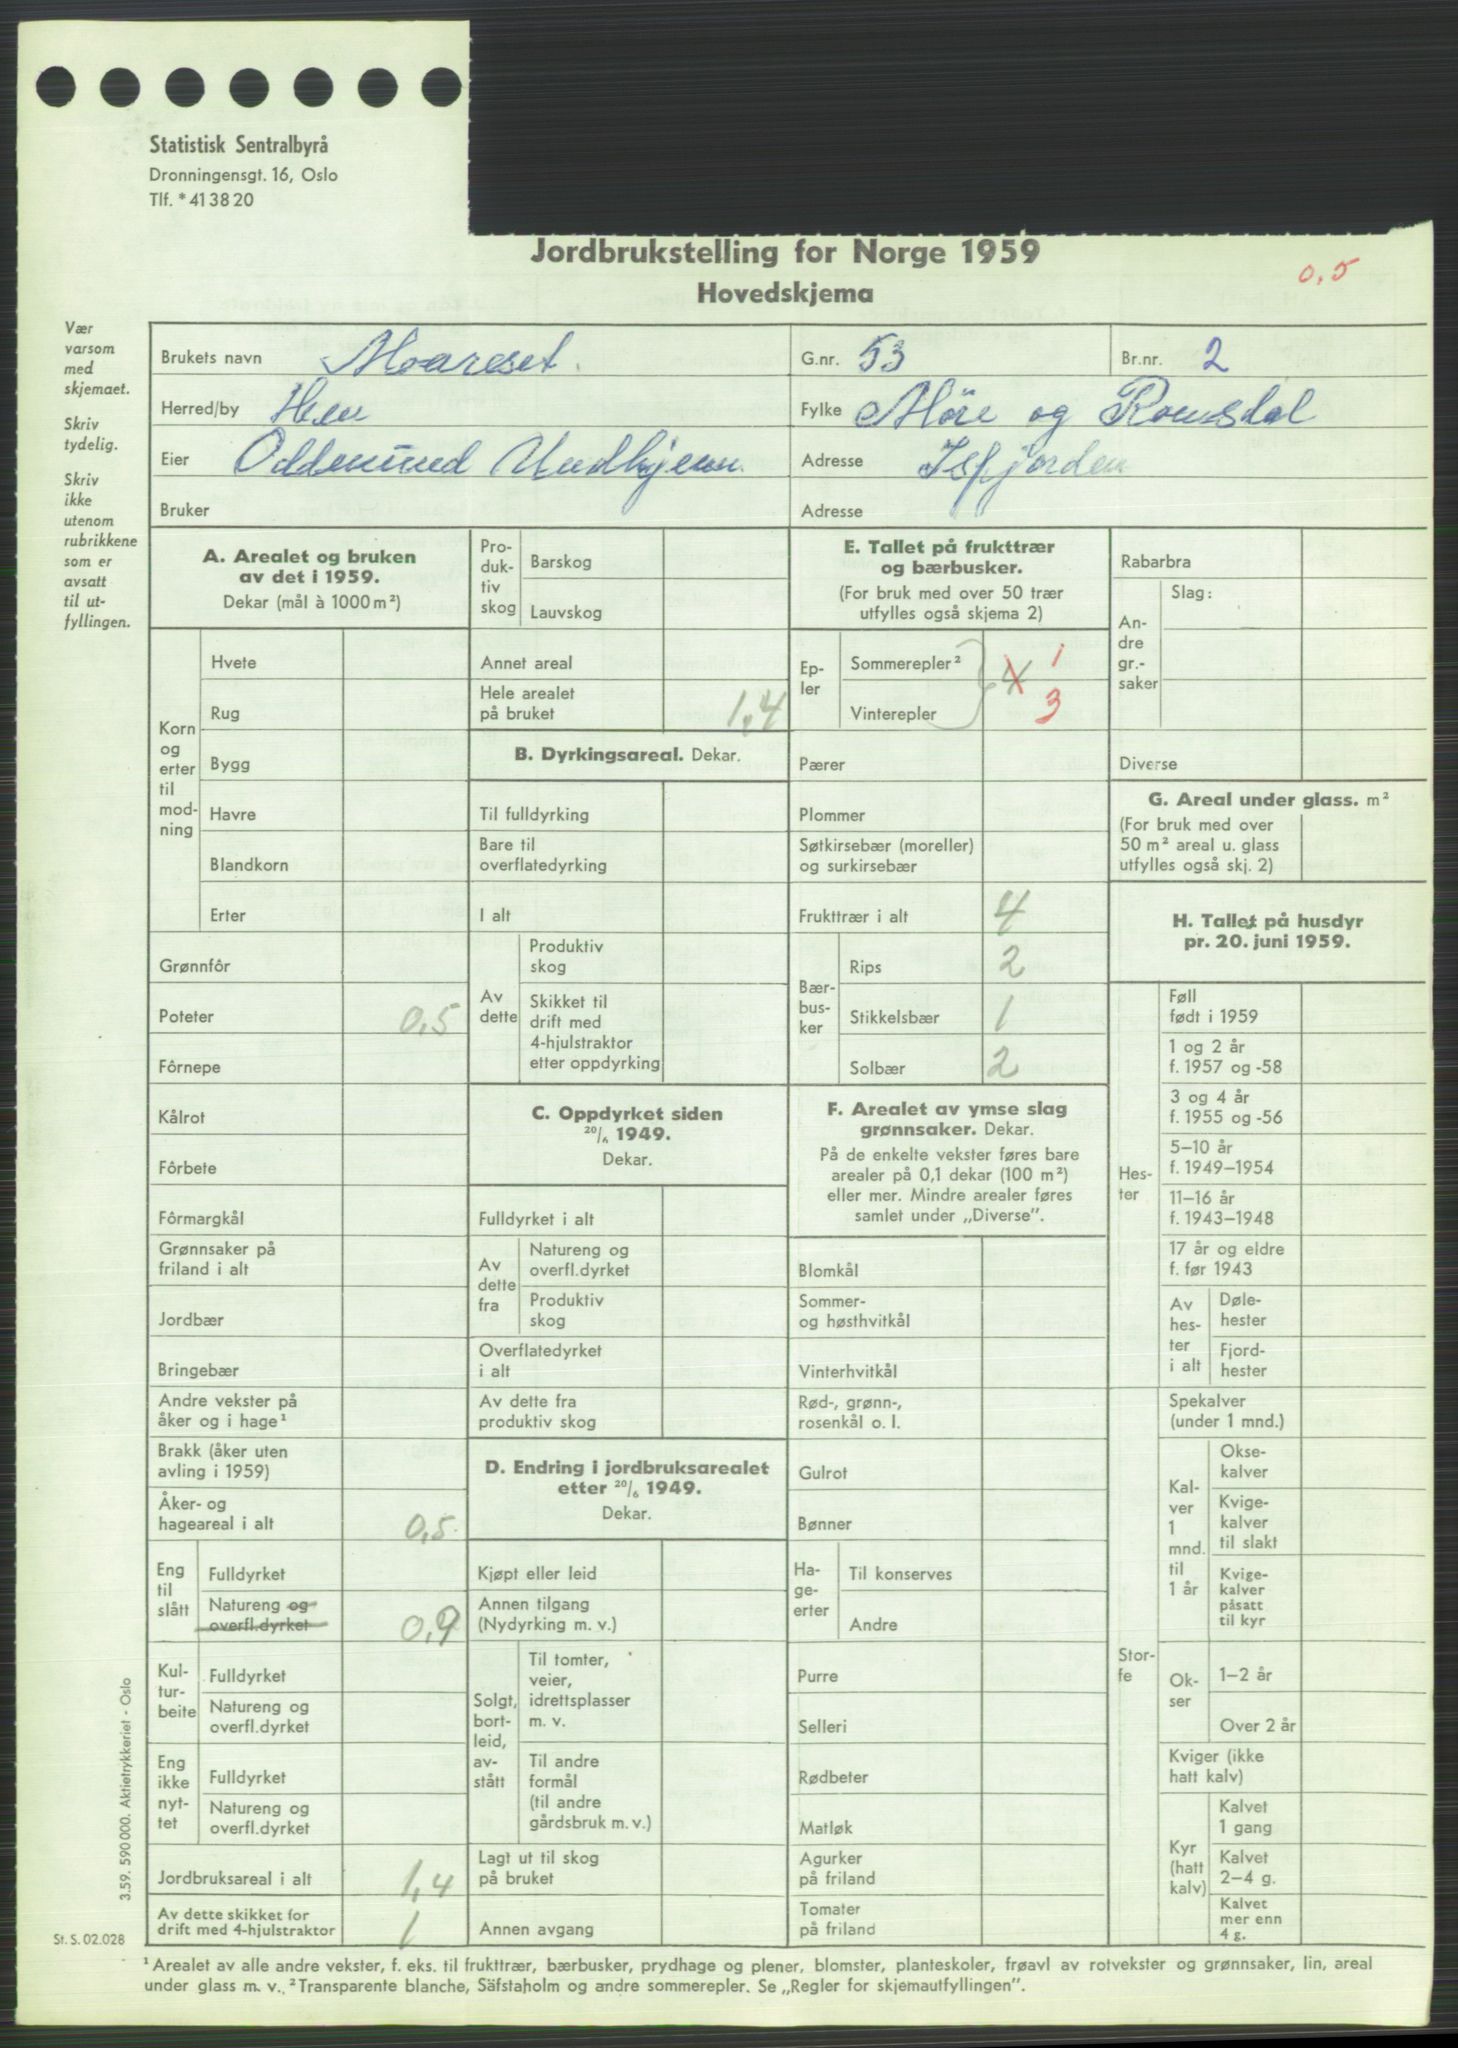 Statistisk Sentralbyrå
Dronningensgt. 16, Oslo
Tlf. * 41 38 20
Jordbrukstelling for Norge 1959
Hovedskjema
0,5
Vær
varsom
med
skjemaet.
Skriv
tydelig.
Skriv
ikke
utenom
rubrikkene
som er
avsatt
til ut-
fyllingen.
Brukets navn Moareset. G.nr. 53 Br.nr. 2
Herred/by Hen Fylke Møre og Romsdal
Eier Oddmund Adresse Isfjorden
Bruker Adresse
A. Arealet og bruken
av det i 1959.
Dekar (mål à 1000 m²)
Korn
og
erter
til
mod-
ning
Hvete
Rug
Bygg
Havre
Blandkorn
Erter
Grønnfôr
Poteter 0,5
Fôrnepe
Kålrot
Fôrbete
Fôrmargkål
Grønnsaker på
friland i alt
Jordbær
Bringebær
Andre vekster på
åker og i hage¹
Brakk (åker uten
avling i 1959)
Åker- og
hageareal i alt 0,5
Eng
til
slått
Fulldyrket
Natureng og
overfl.dyrket 0,9
Kul-
tur-
beite
Fulldyrket
Natureng og
overfl.dyrket
Eng
ikke
nyt-
tet
Fulldyrket
Natureng og
overfl.dyrket
Jordbruksareal i alt 1,4
Av dette skikket for
drift med 4-hjulstraktor 1
Pro-
duk-
tiv
skog
Barskog
Lauvskog
Annet areal
Hele arealet
på bruket 1,4
B. Dyrkingsareal. Dekar.
Til fulldyrking
Bare til
overflatedyrking
I alt
Av
dette
Produktiv
skog
Skikket til
drift med
4-hjulstraktor
etter oppdyrking
C. Oppdyrket siden
20/6 1949.
Dekar.
Fulldyrket i alt
Av
dette
fra
Natureng og
overfl.dyrket
Produktiv
skog
Overflatedyrket
i alt
Av dette fra
produktiv skog
D. Endring i jordbruksarealet
etter 20/6 1949.
Dekar.
Kjøpt eller leid
Annen tilgang
(Nydyrking m. v.)
Solgt,
bort-
leid,
av-
stått
Til tomter,
veier,
idrettsplasser
m. v.
Til andre
formål
(til andre
gårdsbruk m. v.)
Lagt ut til skog
på bruket
Annen avgang
E. Tallet på frukttrær
og bærbusker.
(For bruk med over 50 trær
utfylles også skjema 2)
Ep-
ler
Sommerepler² 4 1
Vinterepler 3
Pærer
Plommer
Søtkirsebær (moreller)
og surkirsebær
Frukttrær i alt 4
Bær-
bus-
ker
Rips 2
Stikkelsbær 1
Solbær 2
F. Arealet av ymse slag
grønnsaker. Dekar.
På de enkelte vekster føres bare
arealer på 0,1 dekar (100 m²)
eller mer. Mindre arealer føres
samlet under „Diverse”.
Blomkål
Sommer-
og høsthvitkål
Vinterhvitkål
Rød-, grønn-,
rosenkål o. l.
Gulrot
Bønner
Ha-
ge-
erter
Til konserves
Andre
Purre
Selleri
Rødbeter
Matløk
Agurker
på friland
Tomater
på friland
Rabarbra
An-
dre
gr.-
saker
Slag:
Diverse
G. Areal under glass. m²
(For bruk med over
50 m² areal u. glass
utfylles også skj. 2)
H. Tallet på husdyr
pr. 20. juni 1959.
Hes-
ter
Føll
født i 1959
1 og 2 år
f. 1957 og -58
3 og 4 år
f. 1955 og -56
5–10 år
f. 1949–1954
11–16 år
f. 1943–1948
17 år og eldre
f. før 1943
Av
hes-
ter
i alt
Døle-
hester
Fjord-
hester
Stor-
fe
Spekalver
(under 1 mnd.)
Kal-
ver
1
mnd.
til
1 år
Okse-
kalver
Kvige-
kalver
til slakt
Kvige-
kalver
påsatt
til kyr
Ok-
ser
1–2 år
Over 2 år
Kviger (ikke
hatt kalv)
Kyr
(hatt
kalv)
Kalvet
1 gang
Kalvet
2–4 g.
Kalvet
mer enn
4 g.
3.59. 590 000. Aktietrykkeriet - Oslo
St. S. 02.028
¹ Arealet av alle andre vekster, f. eks. til frukttrær, bærbusker, prydhage og plener, blomster, planteskoler, frøavl av rotvekster og grønnsaker, lin, areal
under glass m. v. ² Transparente blanche, Säfstaholm og andre sommerepler. Se „Regler for skjemautfyllingen”.